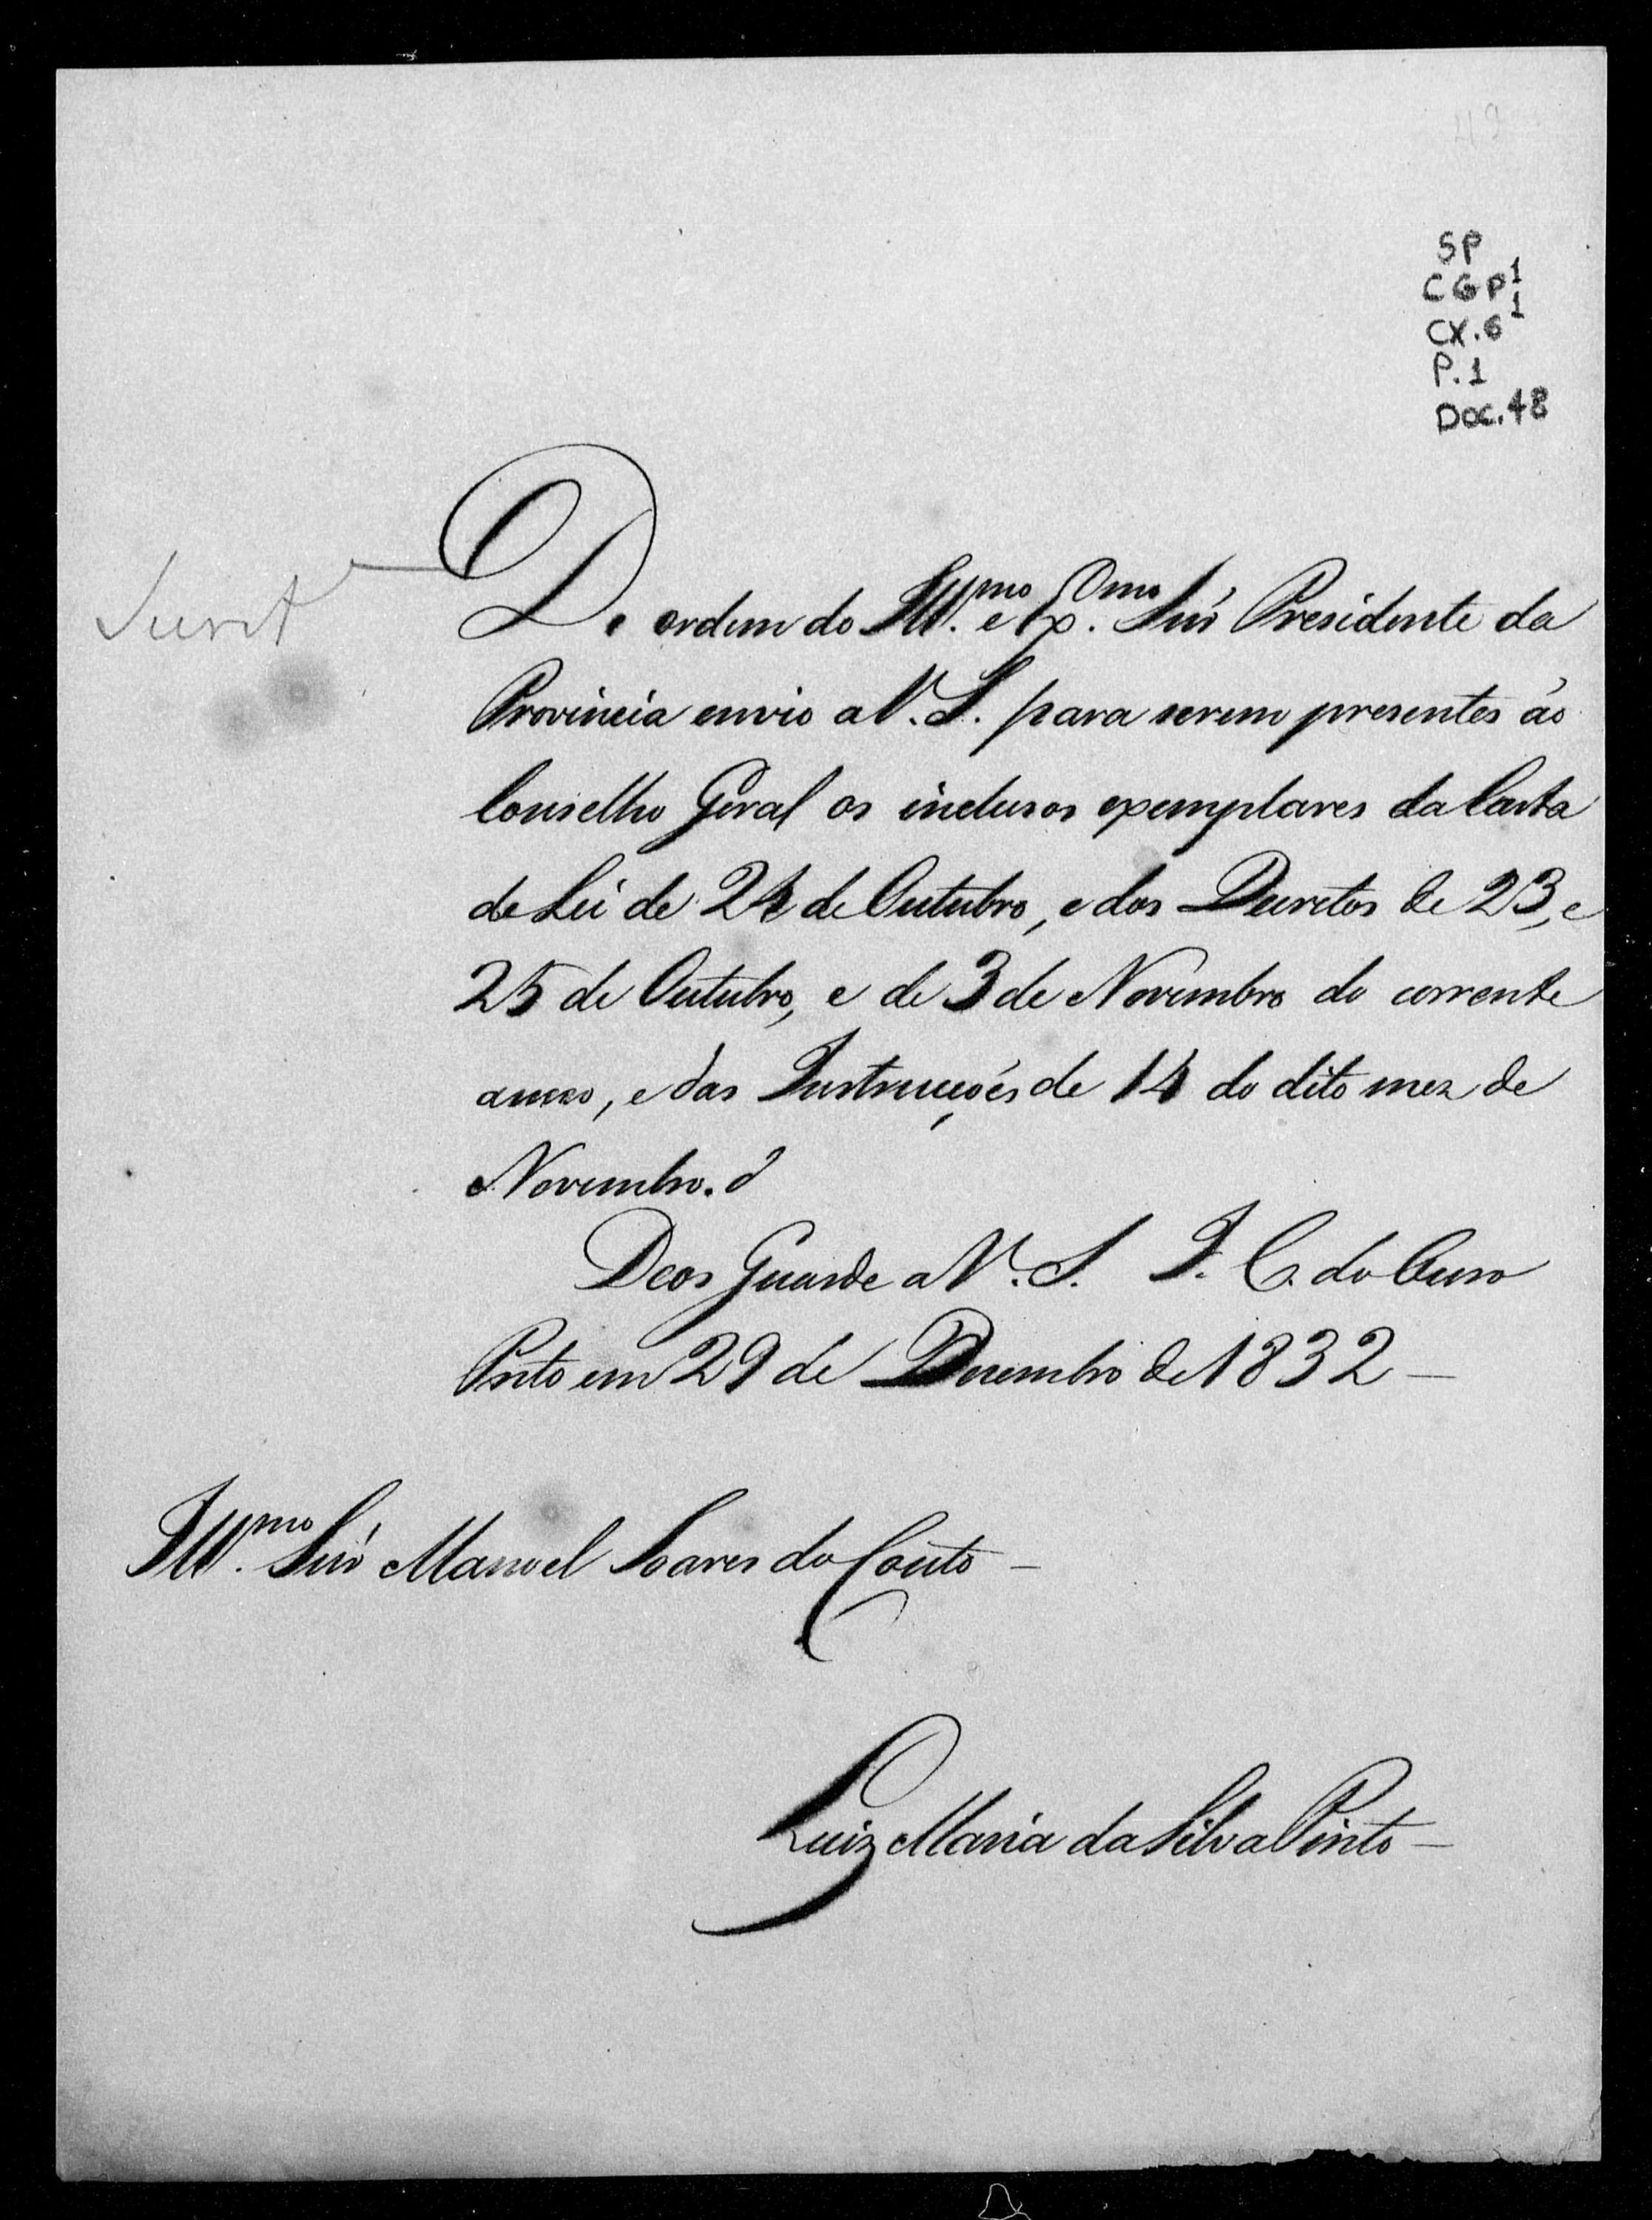 49
SP
CGP¹
CX.6
P.1
Doc.48
De ordem do Ill.mo e Ex.mo Snr Presidente da
Provincia envio a V. S. para serem presentes áo
Conselho Geral os inclusos exemplares da Carta
de Lei de 24 de Outubro, e dos Decretos de 23, e
25 de Outubro, e de 3 de Novembro do corrente
anno, e das Instrucções de 14 do dito mez de
Novembro.
Deos Guarde a V. S. I. C. do Ouro
Preto em 29 de Dezembro de 1832 —
Ill.mo Snr Manoel Soares do Couto —
Luiz Maria da Silva Pinto —